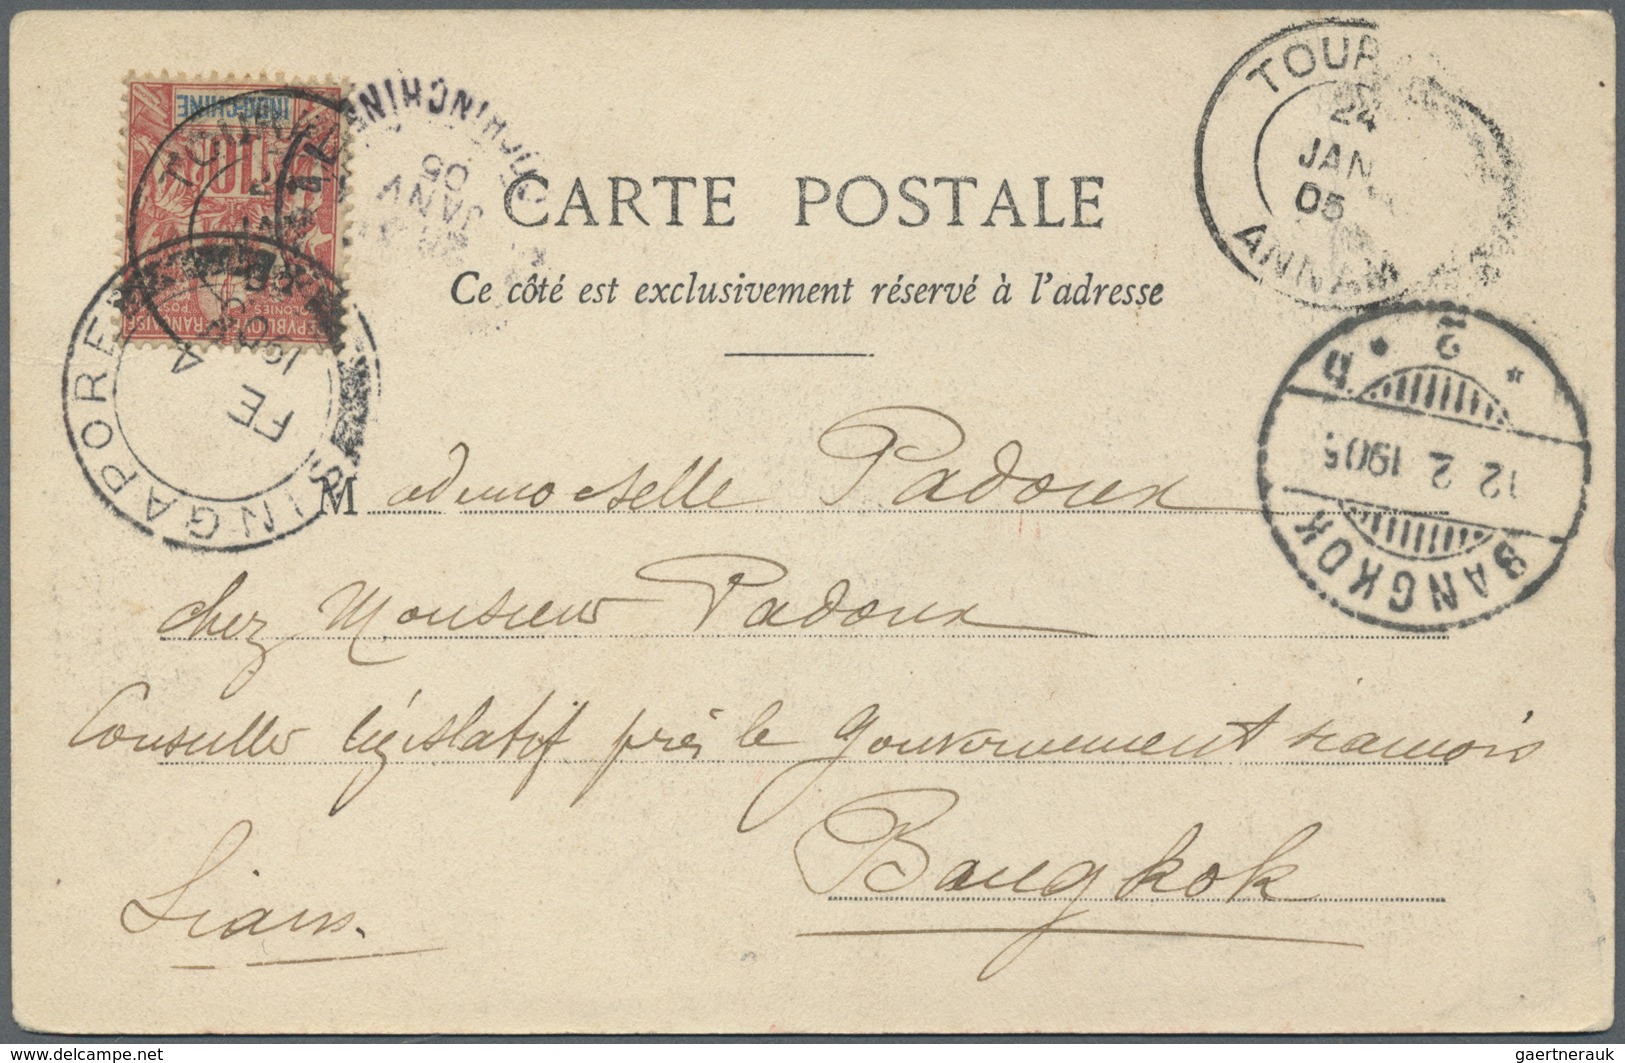 INDO-CHINE
10
RÉPUBLIQUE FRANÇAISE
COLONIES POSTES
TOUR
COCHINCHINE
JANV
05
TOUR
24
JAN
05
ANNAM
CARTE POSTALE
Ce côté est exclusivement réservé à l'adresse
SINGAPORE
A
FE
BANGKOK
12 2 1905
2
D
Mademoiselle Padoux
chez Monsieur Padoux
Conseiller législatif près le Gouvernement siamois
Bangkok
Siam.
www.delcampe.net
gaertnerauk